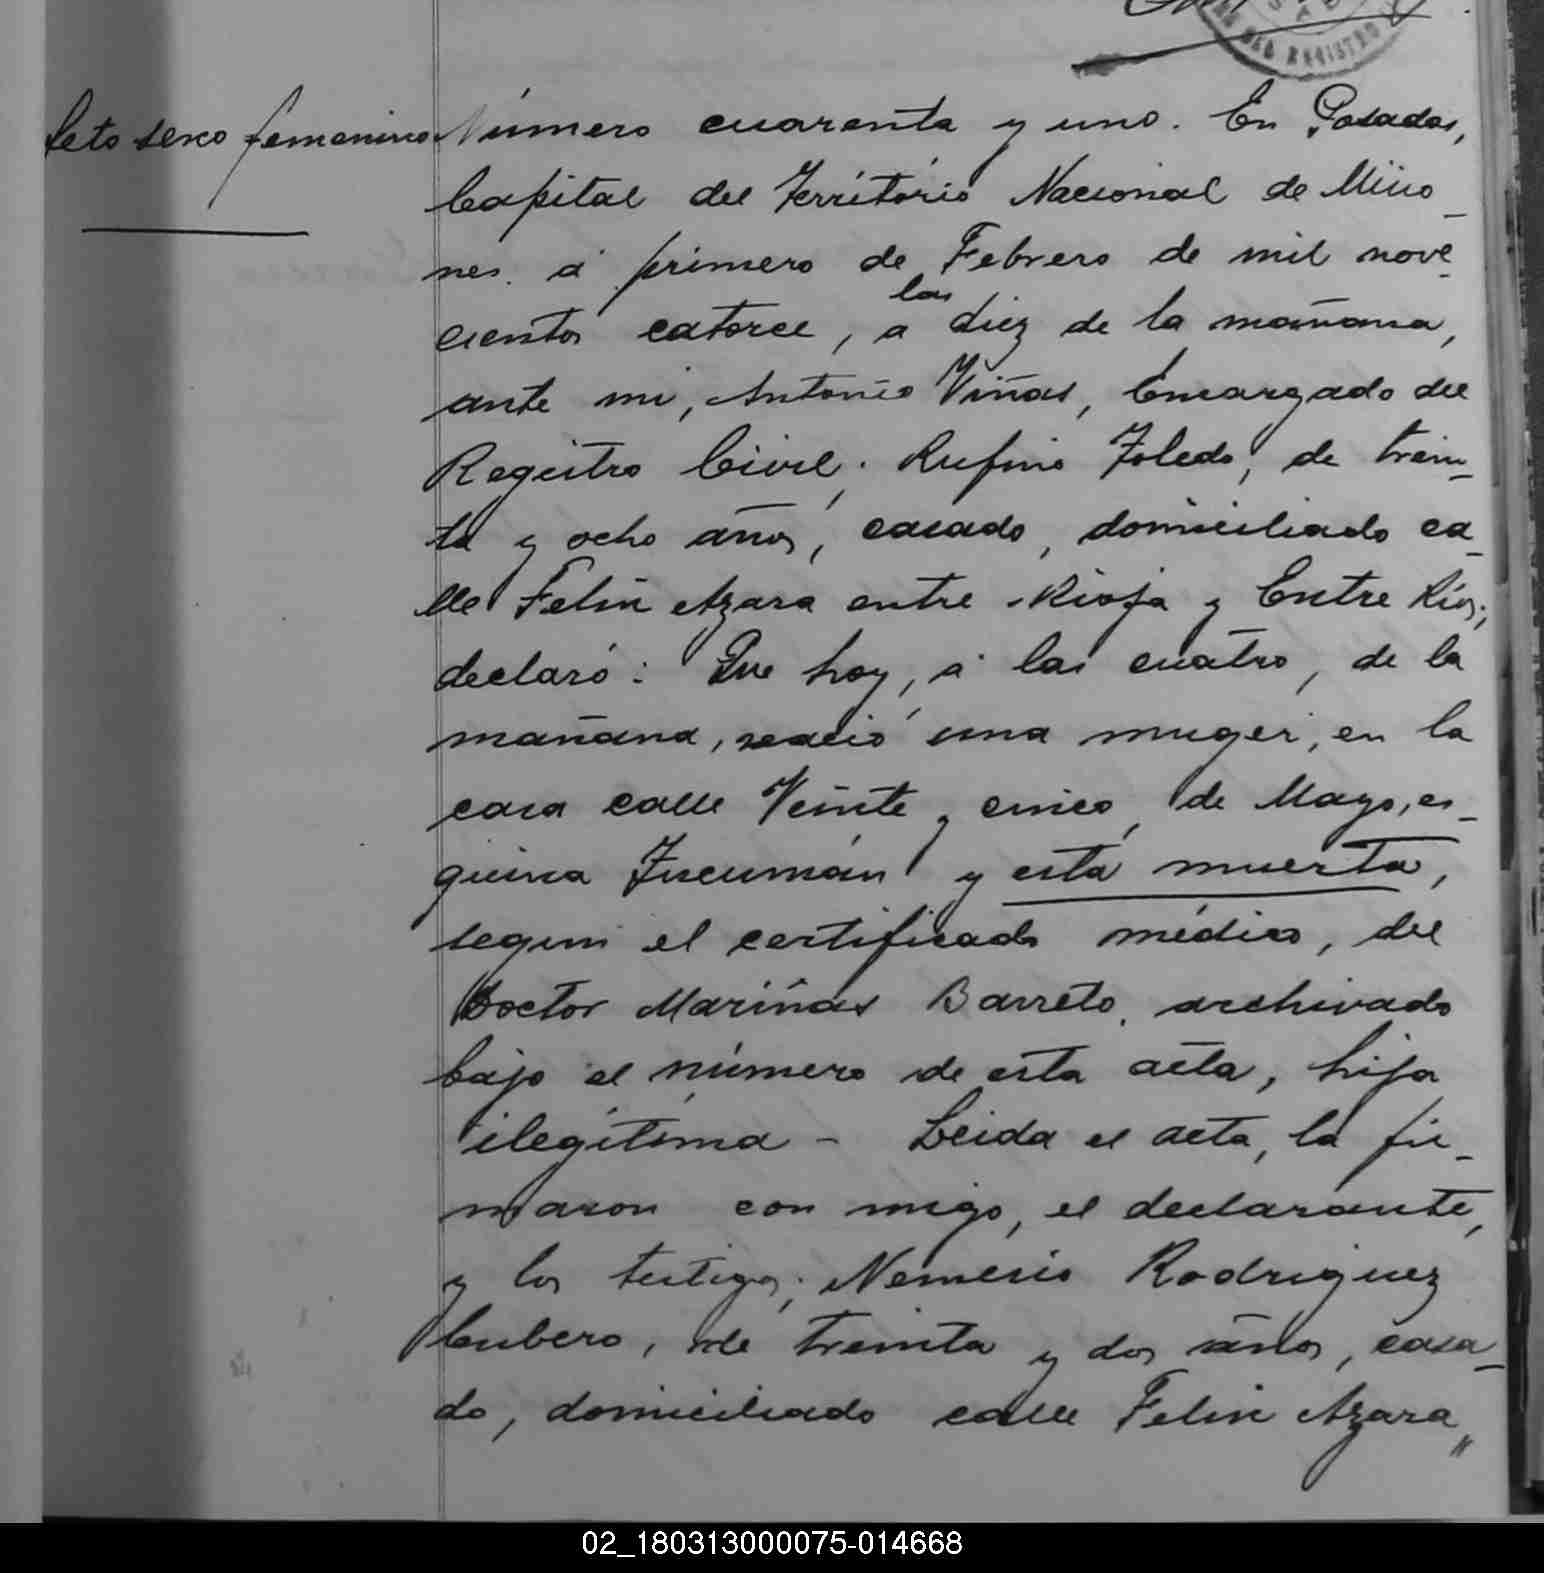 DEL REGISTRO
feto sexo femenino
Número cuarenta y uno. En Posadas,
Capital del Territorio Nacional de Misio-
nes. á primero de Febrero de mil nove-
cientos catorce, a las diez de la mañana,
ante mi, Antonio Viñas, Encargado del
Registro Civil; Rufino Toledo, de trein-
ta y ocho años, casado, domiciliado ca-
lle Felix Azara entre Rioja y Entre Rios;
declaró: Que hoy, á las cuatro, de la
mañana, nació una muger, en la
casa calle Veinte y cinco de Mayo, es-
quina Tucumán y está muerta,
segun el certificado médico, del
Doctor Mariñas Barreto, archivado
bajo el número de esta acta, hija
ilegítima - Leida el acta, la fir-
maron con migo, el declarante,
y los testigos; Nemesio Rodriguez
Cubero, de treinta y dos años, casa-
do, domiciliado calle Felix Azara„
02_180313000075-014668